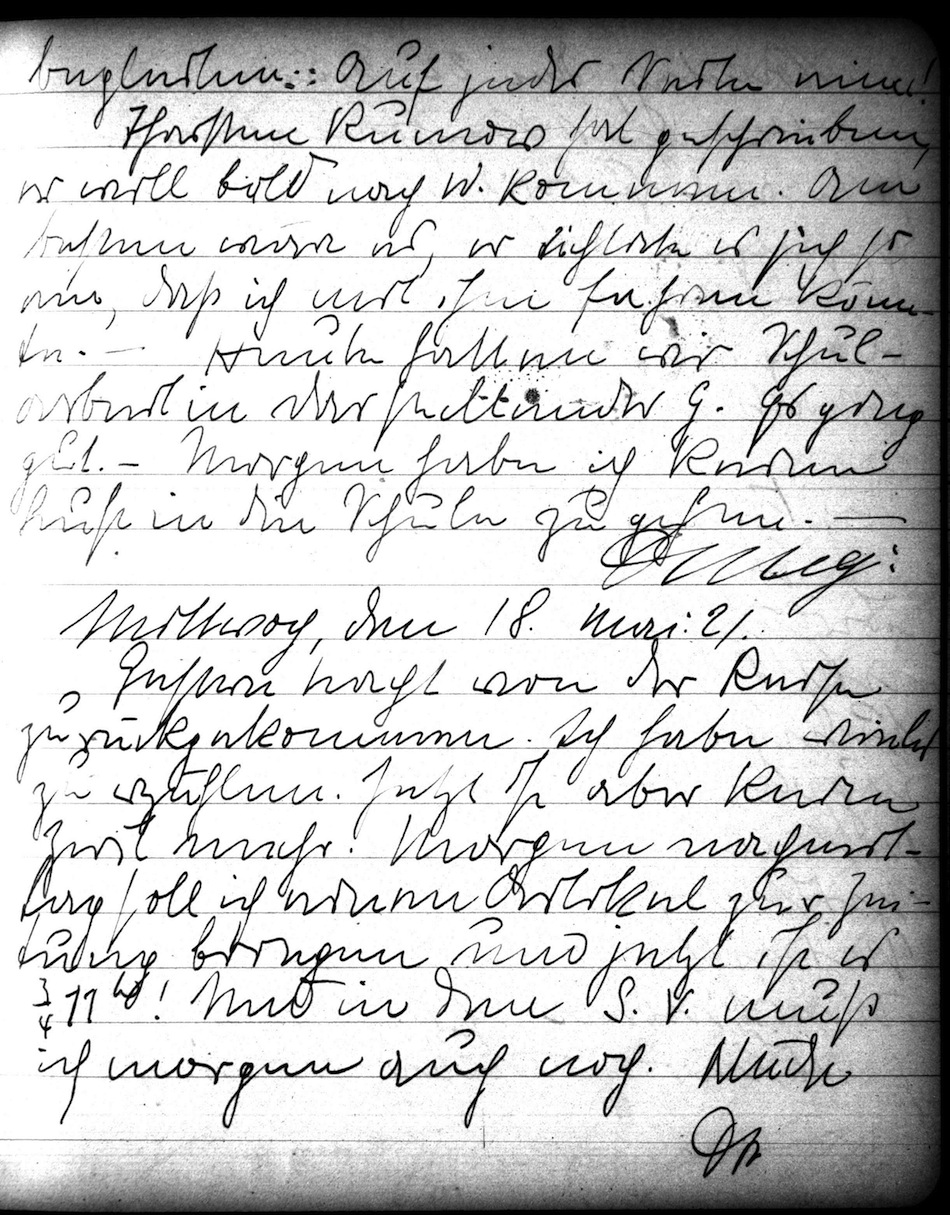 begleiten.: Auf jeder Seite eine!
Thorsten Rümow hat geschrieben,
er will bald nach W. kommen. Am
besten wäre es, er richtete es sich so
ein, daß ich mit ihm fahren könn-
te. — Heute hatten wir Schul-
arbeit in der G. Es ging
gut. — Morgen habe ich keine
Lust in die Schule zu gehen. —
Mittwoch, den 18. Mai. 21.
Gestern Nacht von der Reise
zurückgekommen. Ich habe vieles
zu erzählen. Jetzt ist aber keine
Zeit mehr. Morgen nachmit-
tag soll ich einen Artikel zur Zei-
tung bringen und jetzt ist es
3/4 11 h! Und in den S. V. muß
ich morgen auch noch. Müde